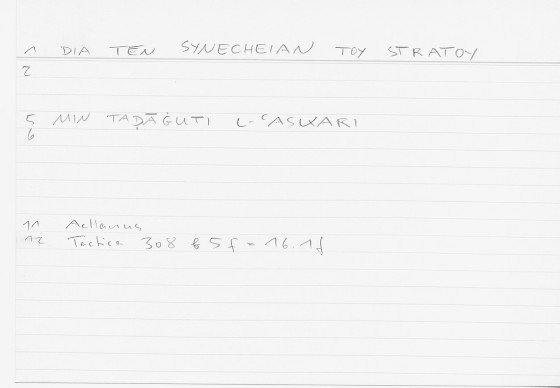 1 DIA TEN SYNECHEIAN TOY STRATOY
2
5 MIN TAḌĀĠUTI L-ʿASKARI
6
11 Aelianus
12 Tactica 308 b 5 f = 16.1f